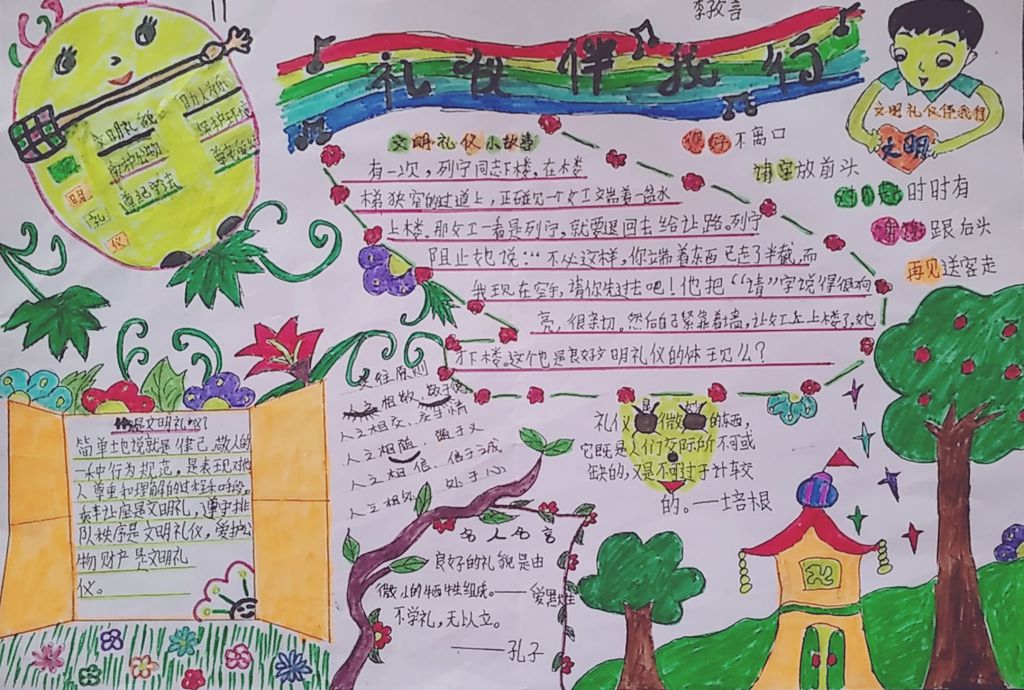 李孜言
礼仪伴我行
文明礼貌
助人为乐
爱护公物
保护环境
遵纪守法
尊老爱幼
文
明
礼
仪
文明礼仪小故事
有一次，列宁同志下楼，在楼
梯狭窄的过道上，正碰见一个女工端着一盆水
上楼。那女工一看是列宁，就要退回去给让路。列宁
阻止她说：“不必这样，你端着东西已走了半截，而
我现在空手，请你先过去吧！他把“请”字说得很响
亮，很亲切。然后自己紧靠着墙，让女工上楼了，他
才下楼。这个也是良好文明礼仪的体现么？
您好不离口
请字放前头
对不起时时有
跟后头
再见送客走
文明礼仪伴我行
文明
交往原则
人之相敬，敬于德
人之相交，交于情
人之相随，随于义
人之相信，信于诚
人之相处，处于心
是文明礼仪？
简单地说就是律己、敬人的
一种行为规范，是表现对他
人尊重和理解的过程和手段。
让座是文明礼，遵守排
队秩序是文明礼仪，爱护公
物财产是文明礼
仪。
礼仪是微的东西，
它既是人们交际所不可或
缺的，又是不可过于计较
的。——培根
名人名言
良好的礼貌是由
微小的牺牲组成。——爱默生
不学礼，无以立。
——孔子